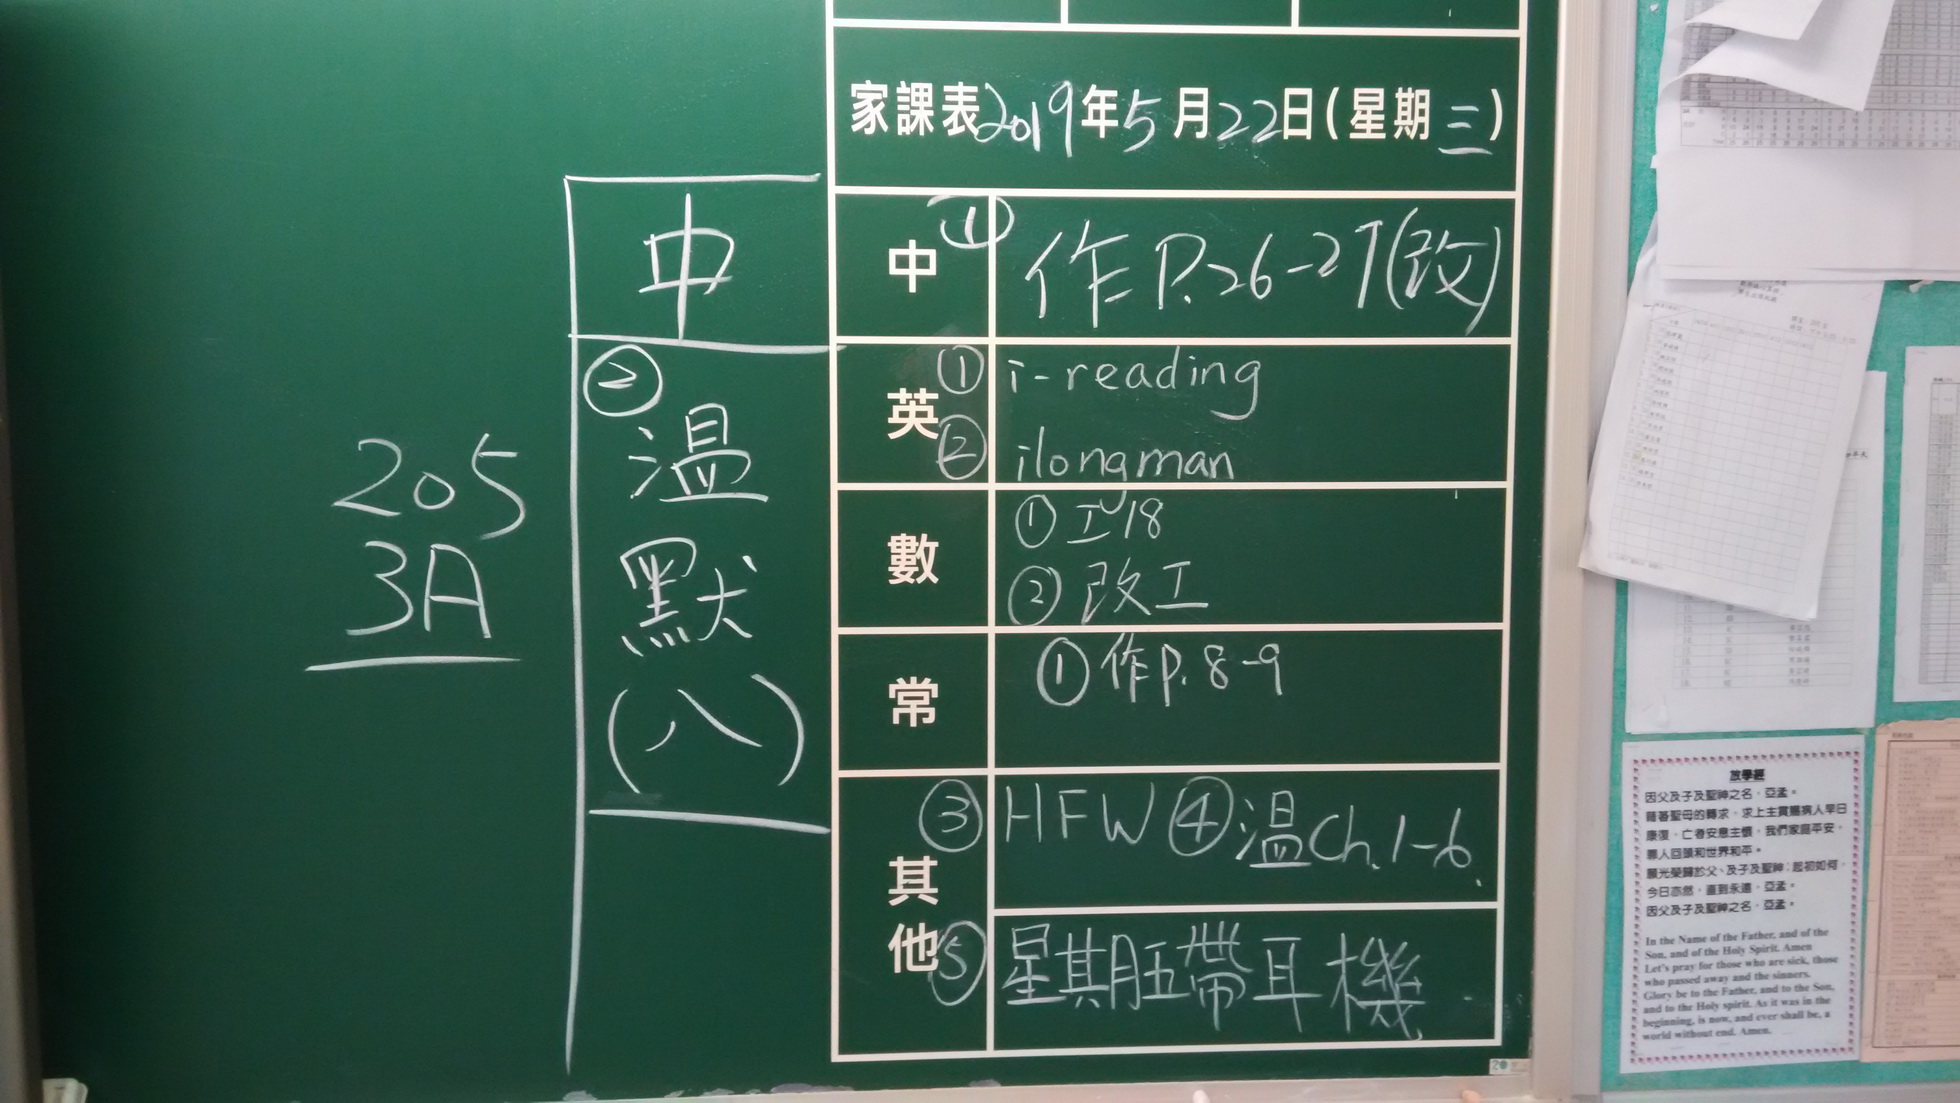 家課表2019年5月22日(星期三)
中 ① 作P.26-27(改)
英 ① i-reading
② ilongman
數 ① 工18
② 改工
常 ① 作P.8-9
其他 ③ HFW ④ 温Ch.1-6
⑤ 星期五帶耳機
中
②
温
默
(八)
205
3A
放學經
因父及子及聖神之名，亞孟。
藉著聖母的轉求，求上主賞賜病人早日
康復，亡者安息主懷，我們家庭平安，
罪人回頭和世界和平。
願光榮歸於父、及子及聖神；起初如何，
今日亦然，直到永遠，亞孟。
因父及子及聖神之名，亞孟。
In the Name of the Father, and of the
Son, and of the Holy Spirit. Amen
Let's pray for those who are sick, those
who passed away and the sinners.
Glory be to the Father, and to the Son,
and to the Holy spirit. As it was in the
beginning, is now, and ever shall be, a
world without end. Amen.